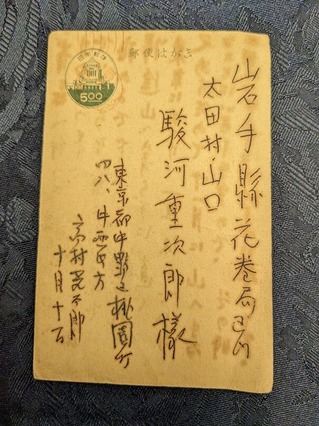 郵便はがき
500
岩手縣花巻局区内
太田村山口
駿河重次郎様
東京都中野区桃園町
四八、中西氏方
高村光太郎
十月十